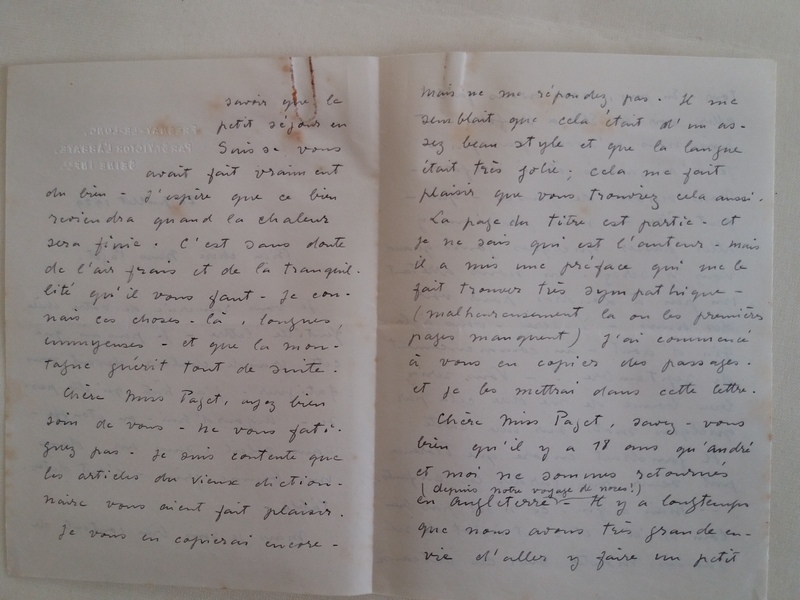 savoir que le
petit séjour en
Suisse vous
avait fait vraiment
du bien - J'espère que ce bien
reviendra quand la chaleur
sera finie. C'est sans doute
de l'air frais et de la tranquil-
lité qu'il vous faut - Je con-
nais ces choses-là, longues,
ennuyeuses - et que la mon-
tagne guérit tout de suite.
Chère Miss Paget, ayez bien
soin de vous - ne vous fati-
guez pas - Je suis contente que
les articles du vieux diction-
naire vous aient fait plaisir.
Je vous en copierai encore -
mais ne me répondez pas. Il me
semblait que cela était d'un as-
sez beau style et que la langue
était très jolie; cela me fait
plaisir que vous trouviez cela aussi.
La page du titre est partie - et
je ne sais qui est l'auteur - mais
il a mis une préface qui me le
fait trouver très sympathique -
(malheureusement la ou les premières
pages manquent) J'ai commencé
à vous en copier des passages.
et je les mettrai dans cette lettre.
Chère Miss Paget, savez-vous
bien qu'il y a 18 ans qu'andré
et moi ne sommes retournés
(depuis notre voyage de noces!)
en angleterre - Il y a longtemps
que nous avons très grande en-
vie d'aller y faire un petit